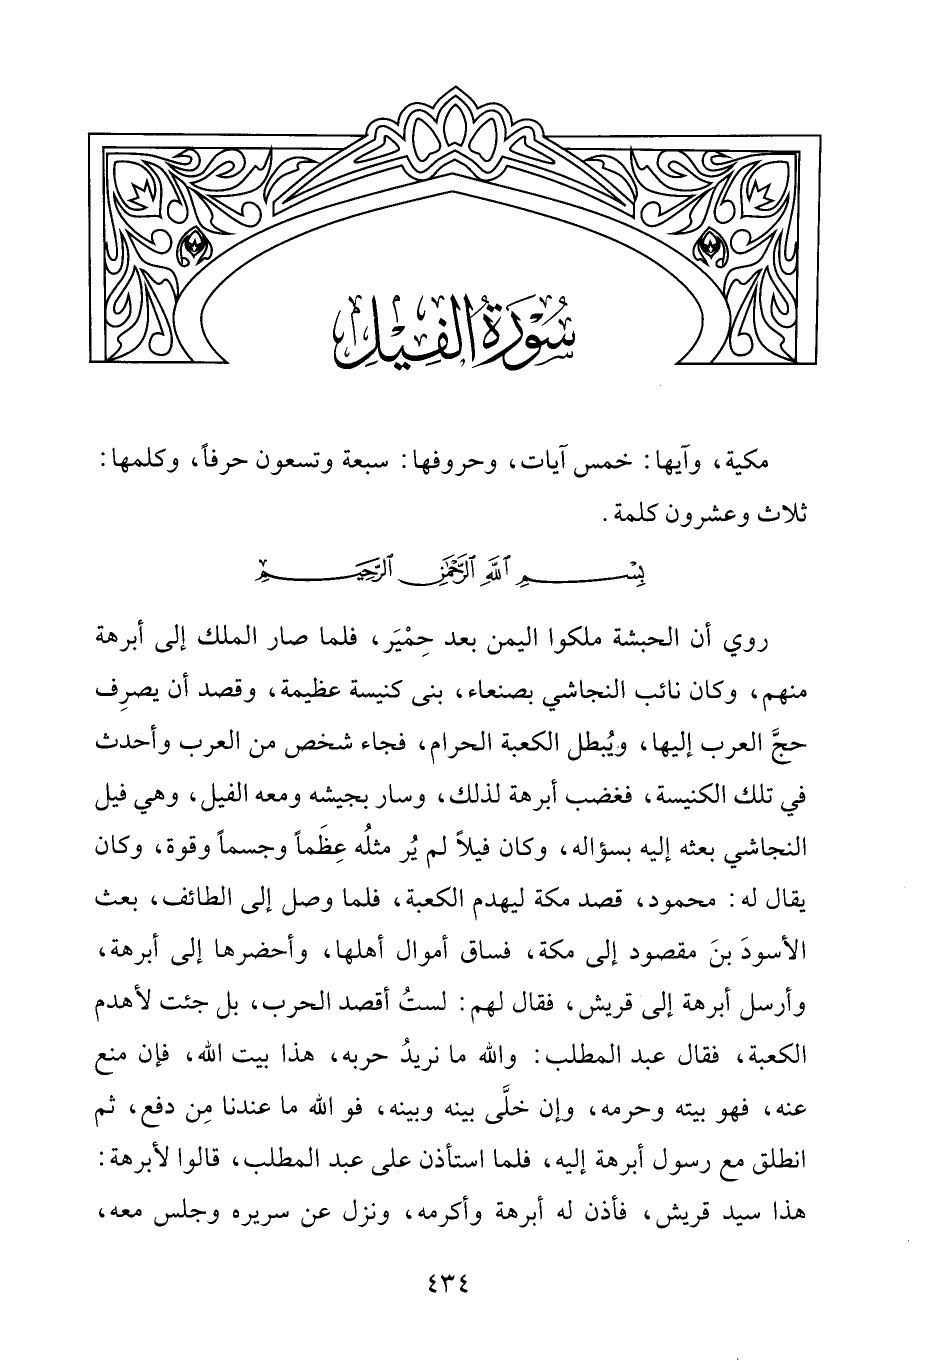 سُورَةُ الْفِيْلِ
مكية، وآيها: خمس آيات، وحروفها: سبعة وتسعون حرفاً، وكلمها:
ثلاث وعشرون كلمة.
بِسْمِ ٱللَّهِ ٱلرَّحْمَٰنِ ٱلرَّحِيمِ
روي أن الحبشة ملكوا اليمن بعد حِمْيَر، فلما صار الملك إلى أبرهة
منهم، وكان نائب النجاشي بصنعاء، بنى كنيسة عظيمة، وقصد أن يصرِف
حجَّ العرب إليها، ويُبطل الكعبة الحرام، فجاء شخص من العرب وأحدث
في تلك الكنيسة، فغضب أبرهة لذلك، وسار بجيشه ومعه الفيل، وهي فيل
النجاشي بعثه إليه بسؤاله، وكان فيلاً لم يُر مثلُه عِظَماً وجسماً وقوة، وكان
يقال له: محمود، قصد مكة ليهدم الكعبة، فلما وصل إلى الطائف، بعث
الأسودَ بنَ مقصود إلى مكة، فساق أموال أهلها، وأحضرها إلى أبرهة،
وأرسل أبرهة إلى قريش، فقال لهم: لستُ أقصد الحرب، بل جئت لأهدم
الكعبة، فقال عبد المطلب: والله ما نريدُ حربه، هذا بيت الله، فإن منع
عنه، فهو بيته وحرمه، وإن خلَّى بينه وبينه، فو الله ما عندنا مِن دفع، ثم
انطلق مع رسول أبرهة إليه، فلما استأذن على عبد المطلب، قالوا لأبرهة:
هذا سيد قريش، فأذن له أبرهة وأكرمه، ونزل عن سريره وجلس معه،
٤٣٤